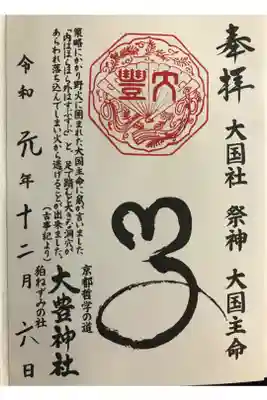 奉拝
大国社　祭神　大国主命
大豊
策略にかかり野火に囲まれた大国主命に鼠が言いました
“内はほらほら外はすぶすぶ”と、足で踏むと大きな洞穴が
あらわれ落ち込んでしまい火から逃げることが出来ました。
(古事記より)
京都哲学の道
大豊神社
狛ねずみの社
令和元年十二月六日